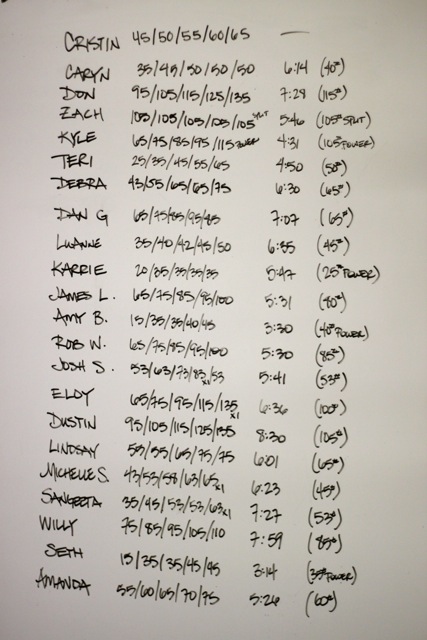 CRISTIN 45/50/55/60/65 —
CARYN 35/45/50/50/50 6:14 (40#)
DON 95/105/115/125/135 7:28 (115#)
ZACH 105/105/105/105/105 SPLIT 5:46 (105# SPLIT)
KYLE 65/75/85/95/115 POWER 4:31 (105# POWER)
TERI 25/35/45/55/65 4:50 (50#)
DEBRA 43/55/65/65/75 6:30 (65#)
DAN G 65/75/85/95/85 7:07 (65#)
LUANNE 35/40/42/45/50 6:55 (45#)
KARRIE 20/35/35/35/35 5:47 (25# POWER)
JAMES L. 65/75/85/95/100 5:31 (80#)
AMY B. 15/35/35/40/45 3:30 (40# POWER)
ROB W. 65/75/85/95/100 5:30 (85#)
JOSH S. 53/63/73/83x1/53 5:41 (53#)
ELOY 65/75/95/115/135x1 6:36 (100#)
DUSTIN 95/105/115/125/135 8:30 (105#)
LINDSAY 55/55/65/75/75 6:01 (65#)
MICHELLE S. 43/53/58/63/65x1 6:23 (45#)
SANGEETA 35/45/53/53/63x1 7:27 (53#)
WILLY 75/85/95/105/110 7:59 (85#)
SETH 15/35/35/45/45 3:14 (35# POWER)
AMANDA 55/60/65/70/75 5:26 (60#)